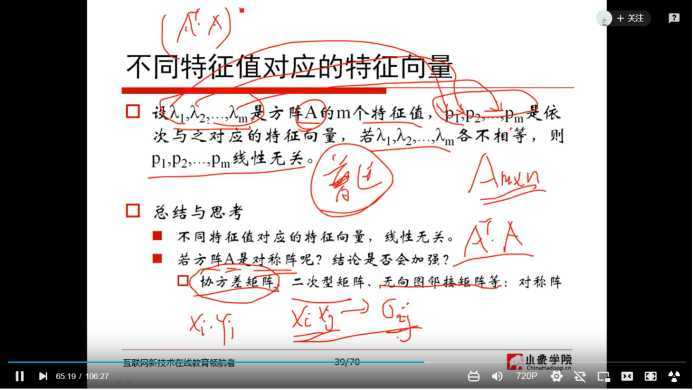 (AᵀA)
+ 关注
不同特征值对应的特征向量
设λ₁,λ₂,…,λₘ是方阵A的m个特征值，p₁,p₂,…,pₘ是依
次与之对应的特征向量，若λ₁,λ₂,…,λₘ各不相等，则
p₁,p₂,…,pₘ线性无关。
普适
Amxn
总结与思考
不同特征值对应的特征向量，线性无关。
Aᵀ·A
若方阵A是对称阵呢？结论是否会加强？
协方差矩阵、二次型矩阵、无向图邻接矩阵等：对称阵
xᵢ·yⱼ
xᵢ xⱼ → σᵢⱼ
互联网新技术在线教育领航者
39/70
小象学院
ChinaHadoop.cn
65:19 / 106:27
720P